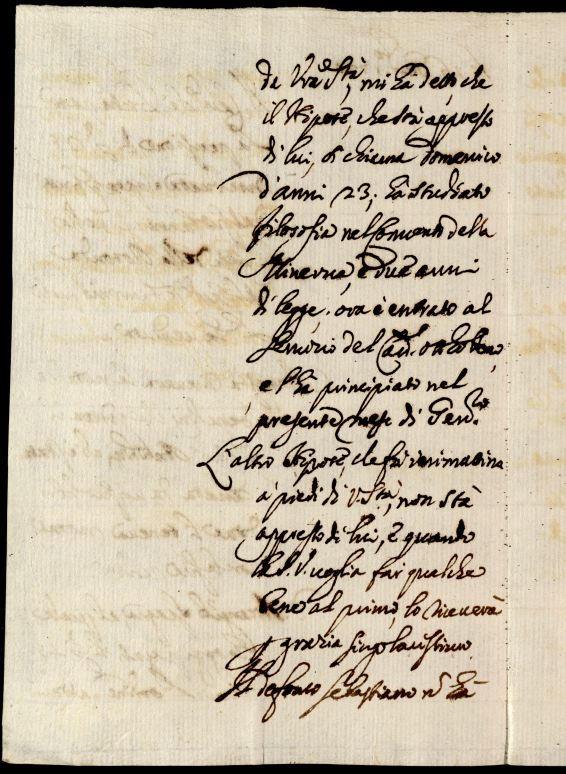 da Vra Stà, mi hà detto, che
il Nipote, che stà appresso
di lui, si chiama Domenico
d'anni 23; hà studiato
filosofia nel Convento della
Minerva, e due anni
di legge. ora è entrato al
servizio del Card. Ottobono,
e l'hà principiato nel
presente mese di Genro
L'altro Nipote, che fù ieri mattina
a' piedi di V. Stà, non stà
appresso di lui, e quando
la S. V. voglia far qualche
bene al primo, lo riceverà
p grazia singolarissima.
Il defonto Sebastiano nō hà